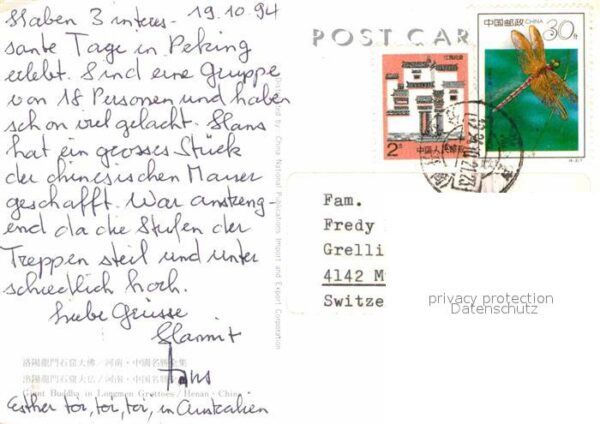 Haben 3 interes- 19.10.94
sante Tage in Peking
erlebt. Sind eine Gruppe
von 18 Personen und haben
schon viel gelacht. Hans
hat ein grosses Stück
der chinesischen Mauer
geschafft. War anstreng-
end da die Stufen der
Treppen steil und unter
schiedlich hoch.
Liebe Grüsse
Hanni +
Hans
洛陽龍門石窟大佛／河南・中國名勝全集
Giant Buddha in Longmen Grottoes / Henan · China
Esther toi, toi, toi, in Australien
China National Publications Import and Export Corporation
POST CAR
中国邮政 CHINA 30分
2分 中国人民邮政
Fam.
Fredy
Grelli
4142 M
Switze
privacy protection
Datenschutz